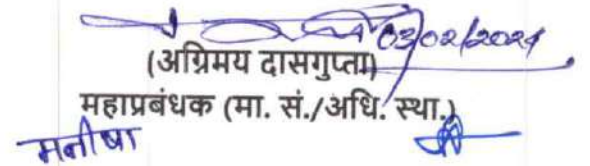 03/02/2024
(अग्रिमय दासगुप्ता)
महाप्रबंधक (मा. सं./अधि. स्था.)
मनीषा